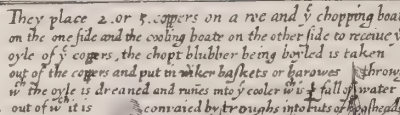 They place 2. or 3. coppers on a row and yͤ chopping boat
on the one ſide and the cooling boate on the other ſide to receiue yͤ
oyle of yͤ coppers, the chopt blubber being boyled is taken
out of the coppers and put in wiker baſkets or barowes throw
wᶜʰ the oyle is dreaned and runes into yͤ cooler wᶜʰ is full of water
out of wᶜʰ it is convaied by troughs into buts or hogſheads